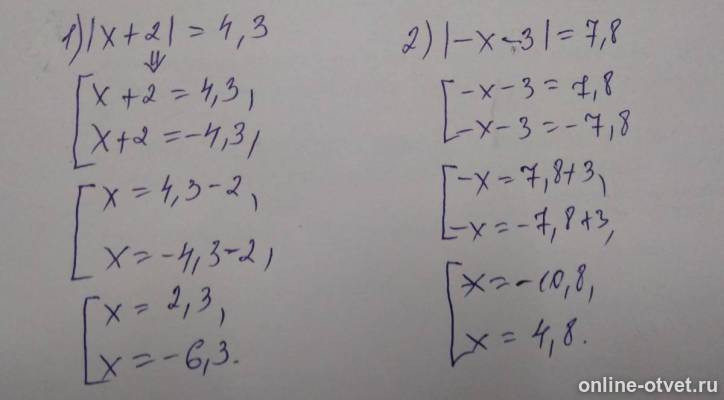 1) |x+2| = 4,3
⇓
[ x+2 = 4,3,
x+2 = -4,3,
[ x = 4,3-2,
x = -4,3-2,
[ x = 2,3,
x = -6,3.
2) |-x-3| = 7,8
[ -x-3 = 7,8
-x-3 = -7,8
[ -x = 7,8+3,
-x = -7,8+3,
[ x = -10,8,
x = 4,8.
online-otvet.ru